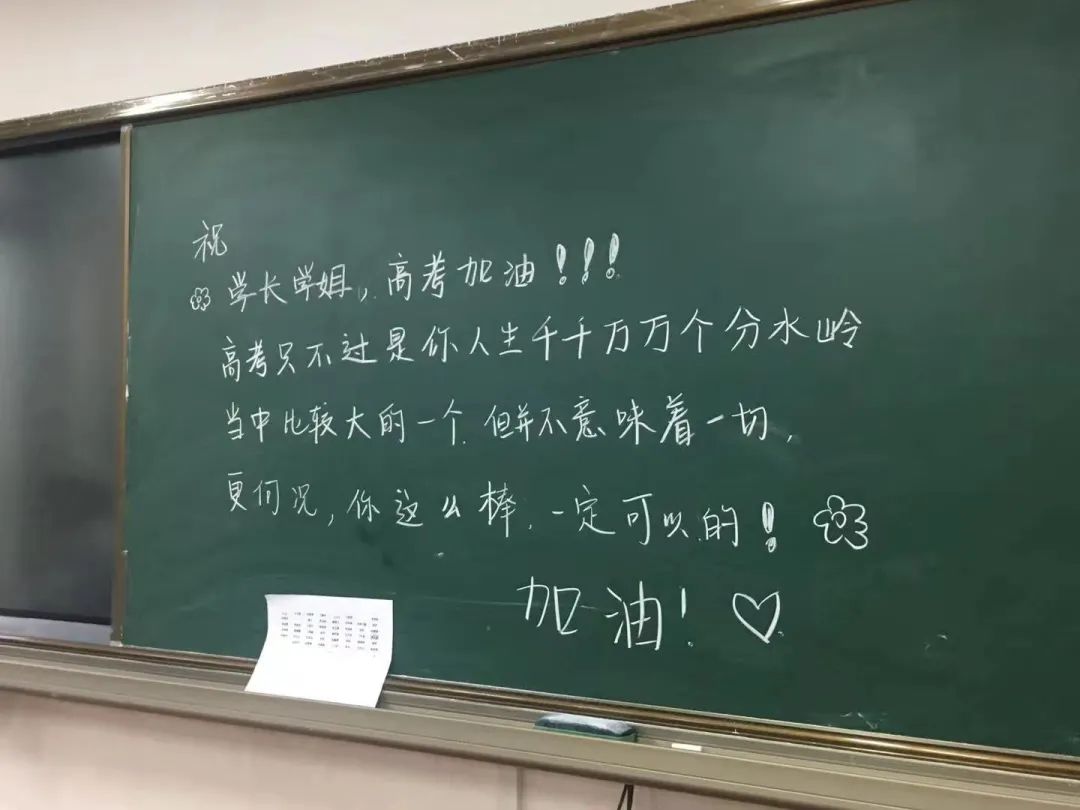 祝
学长学姐,高考加油!!!
高考只不过是你人生千千万万个分水岭
当中比较大的一个.但并不意味着一切,
更何况,你这么棒.一定可以的!
加油!